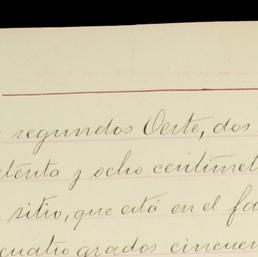 segundos Oeste, dos
y ocho centímet
sitio, que está en el fa
cuatro grados cincuen